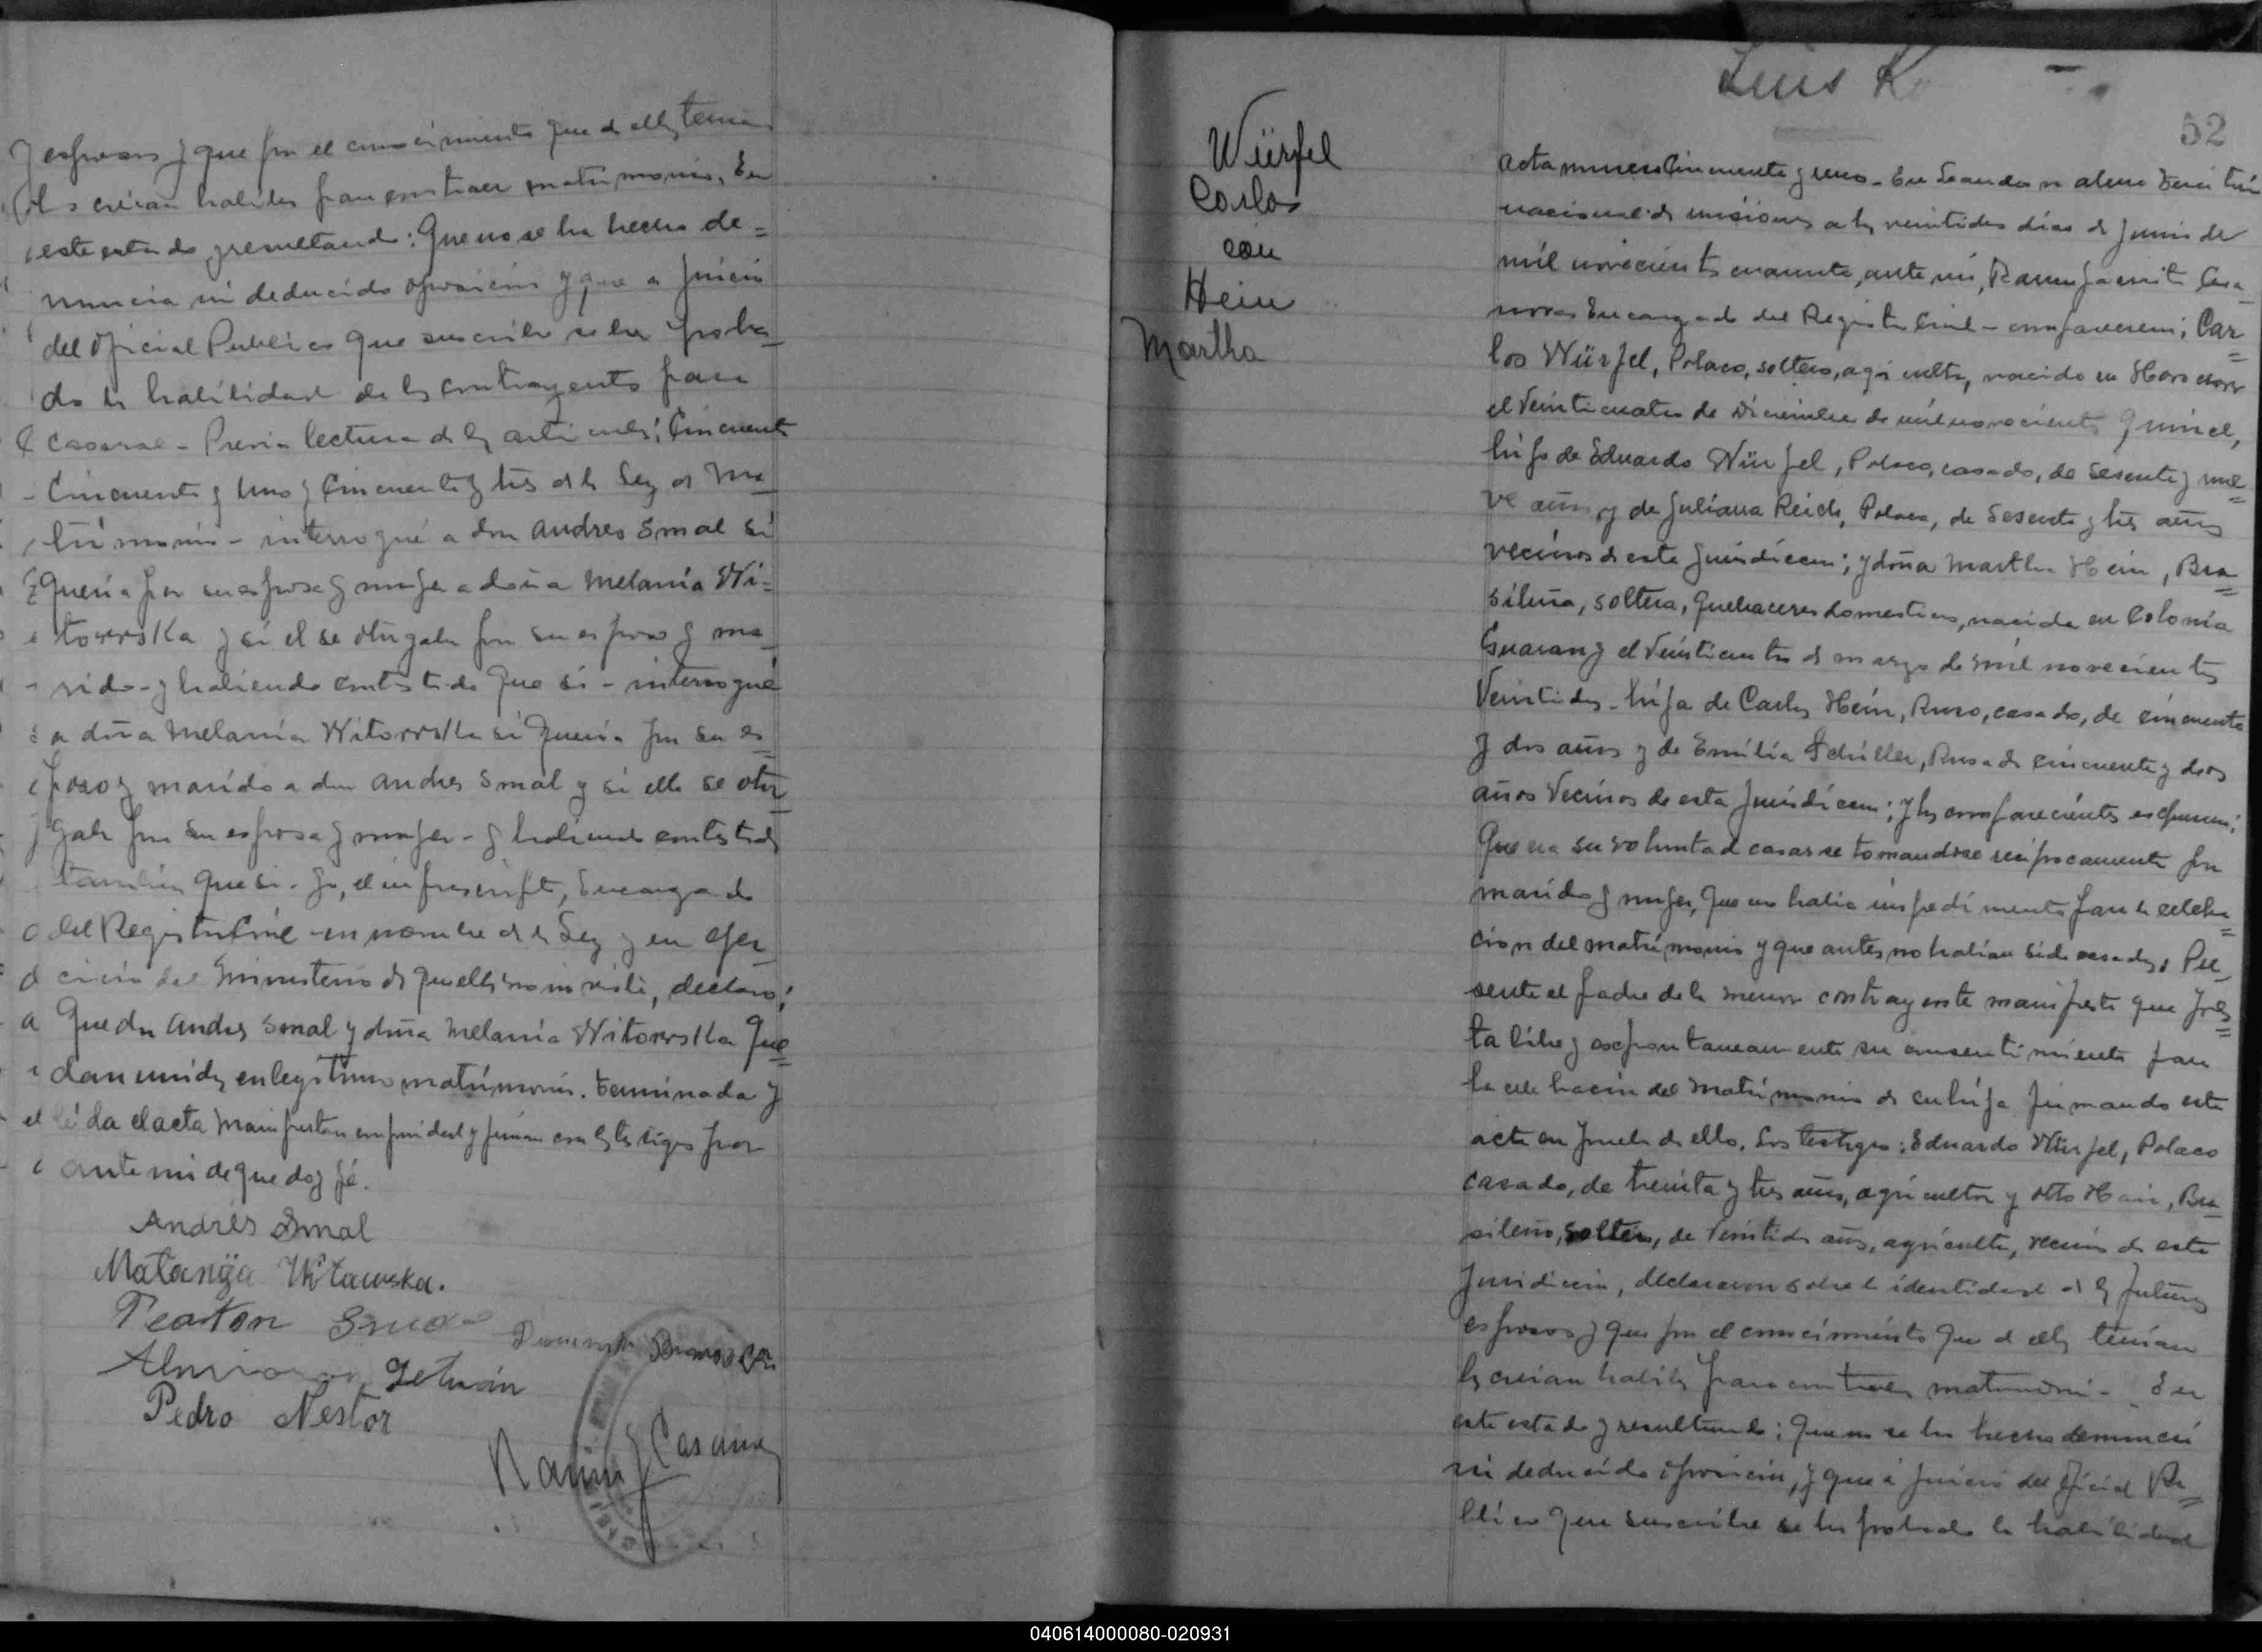 y esposos y que por el conocimiento que de ellos tenian
los creian habiles para contraer matrimonio. En
este estado y resultando: Que no se ha hecho de=
nuncia ni deducido oposicion y que a juicio
del Oficial Publico que suscribe se ha proba_
do la habilidad de los contrayentes para
casarse - Previa lectura de los articulos; Cincuenta
- Cincuenta y uno y Cincuenta y tres de la Ley de Ma_
trimonio - interrogué a don Andres Smal si
queria por su esposa y mujer a doña Melania Wi=
towska y si el se otorgaba por su esposo y ma_
rido - y habiendo contestado que si - interrogué
a doña Melania Witowska si queria por su es_
poso y marido a don Andres Smal y si ella se otor_
gaba por su esposa y mujer - y habiendo contestado
tambien que si. Yo, el infrascripto, Encargado
del Registro Civil en nombre de la Ley y en ejer_
cicio del Ministerio de que ella me inviste, declaro;
Que don Andres Smal y doña Melania Witowska que=
dan unidos en legitimo matrimonio. Terminada y
leida el acta manifestan conformidad y firman con los testigos por
ante mi de que doy fé.
Andrés Smal
Malanÿa Witawska.
Pedro Nestor
Ramon J Casanova
Luis K
52
Würfel
Carlos
con
Hein
Martha
Acta numero Cincuenta y uno - En Leandro n alem Territorio
nacional de misiones a los veintidos dias de Junio de
mil novecientos cuarenta, ante mi, Ramon Jacinto Casa_
novas Encargado del Registro Civil - comparecieron; Car=
los Würfel, Polaco, soltero, agricultor, nacido en
el Veinticuatro de Diciembre de mil novecientos Quince,
hijo de Eduardo Würfel, Polaco, casado, de sesenta y nue=
ve años y de Juliana Reich, Polaca, de Sesenta y tres años
vecinos de esta jurisdiccion; y doña Martha Hein, Bra=
sileña, soltera, Quehaceres domesticos, nacida en Colonia
Guarany el Veinticuatro de marzo de mil novecientos
Veintidos - hija de Carlos Hein, Ruso, casado, de cincuenta
y dos años y de Emilia Schiller, Rusa de cincuenta y dos
años Vecinos de esta Jurisdiccion; y los comparecientes expusieron;
Que era su voluntad casarse tomandose reciprocamente por
marido y mujer, que no habia impedimento para la celebra=
cion del matrimonio y que antes no habian sido casados. Pre_
sente el padre de la menor contrayente manifiesta que pres=
ta libre y expontaneamente su consentimiento para
la celebracion del matrimonio de su hija firmando esta
acta en prueba de ello. Los testigos: Eduardo Würfel, Polaco
casado, de treinta y tres años, agricultor y Otto Hein, Bra_
sileño, soltero, de Veintidos años, agricultor, vecinos de esta
Jurisdiccion, declararon sobre la identidad de los futuros
esposos y que por el conocimiento que de ellos tenian
los creian habiles para contraer matrimonio - En
este estado y resultando; Que no se ha hecho denuncia
ni deducido oposicion, y que a juicio del Oficial Pu=
blico que suscribe se ha probado la habilidad
040614000080-020931